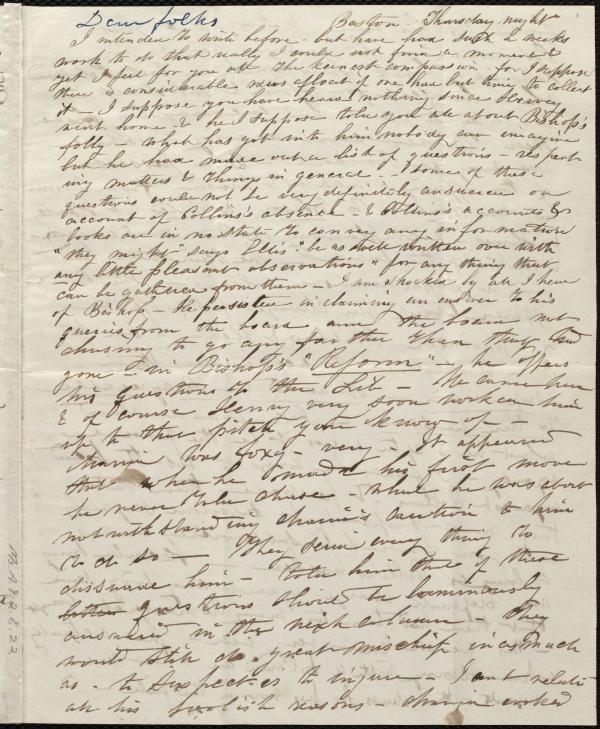 Dear folks Boston Thursday night
I intended to write before - but have had such a weeks
work to do that really I could not find a moment &
yet I feel for you all the keenest compassion - for I suppose
there is considerable news afloat if one had but time to collect
it - I suppose you have heard nothing since Henry
went home & he I suppose told you all about Bishop's
folly - What has got into him nobody can imagine
but he had made out a list of questions - respect
ing matters & things in general - Some of these
questions could not be very definitely answered on
account of Collins's absence - & Collins's accounts &
books are in no state to convey any information
"they might" says Ellis "be as well written over with
any little pleasant observations" for any thing that
can be gathered from them - I am shocked by all I hear
of Bishop - He persisted in claiming an answer to his
queries from the board and the board not
chusing to go any farther than they had
gone in Bishop's "Reform" - he offers
his questions to the Lib - He came here
& of course Henry very soon worked him
up to that pitch you know of -
Maria was foxy - very - It appeared
that when he made his first move
he never told Chase - what he was about
notwithstanding Maria's caution to him
to do so - They said every thing to
dissuade him - told him that if these
questions should be luminously
answered in the next column - They
would still do great mischief inasmuch
as - to suspect - is to injure - I cant relate
all his foolish reasons - Maria evoked
M.A.9.2.8.22